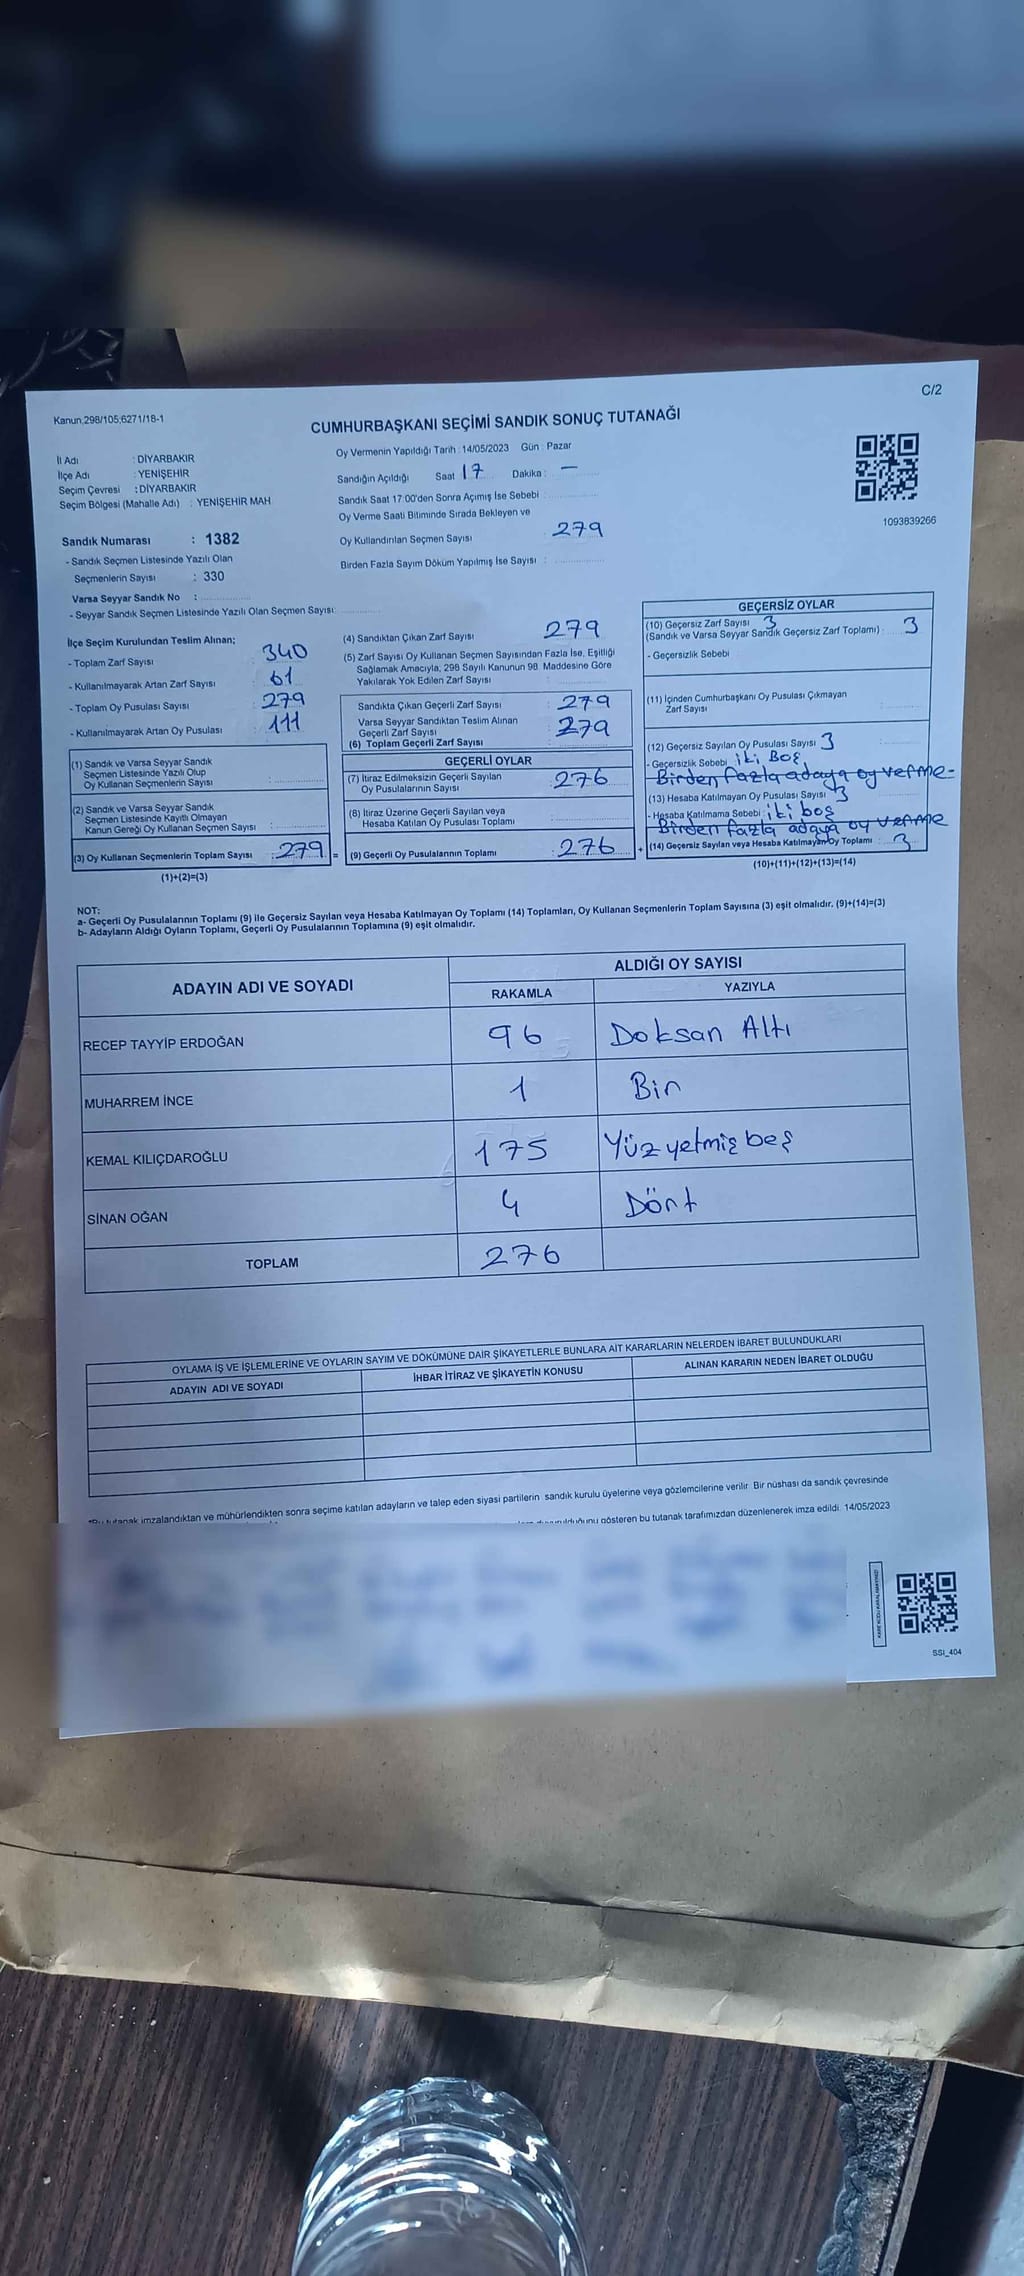 C/2
Kanun.298/105;6271/18-1
CUMHURBAŞKANI SEÇİMİ SANDIK SONUÇ TUTANAĞI
İl Adı : DİYARBAKIR
İlçe Adı : YENİŞEHİR
Seçim Çevresi : DİYARBAKIR
Seçim Bölgesi (Mahalle Adı) : YENİŞEHİR MAH
Sandık Numarası : 1382
- Sandık Seçmen Listesinde Yazılı Olan
Seçmenlerin Sayısı : 330
Varsa Seyyar Sandık No :
- Seyyar Sandık Seçmen Listesinde Yazılı Olan Seçmen Sayısı:
Oy Vermenin Yapıldığı Tarih : 14/05/2023 Gün : Pazar
Sandığın Açıldığı Saat 17 Dakika : —
Sandık Saat 17:00'den Sonra Açımış İse Sebebi :
Oy Verme Saati Bitiminde Sırada Bekleyen ve
Oy Kullandırılan Seçmen Sayısı : 279
Birden Fazla Sayım Döküm Yapılmış İse Sayısı :
1093839266
İlçe Seçim Kurulundan Teslim Alınan;
- Toplam Zarf Sayısı : 340
- Kullanılmayarak Artan Zarf Sayısı : 61
- Toplam Oy Pusulası Sayısı : 279
- Kullanılmayarak Artan Oy Pusulası : 111
(1) Sandık ve Varsa Seyyar Sandık
Seçmen Listesinde Yazılı Olup
Oy Kullanan Seçmenlerin Sayısı :
(2) Sandık ve Varsa Seyyar Sandık
Seçmen Listesinde Kayıtlı Olmayan
Kanun Gereği Oy Kullanan Seçmen Sayısı :
(3) Oy Kullanan Seçmenlerin Toplam Sayısı : 279 =
(1)+(2)=(3)
(4) Sandıktan Çıkan Zarf Sayısı : 279
(5) Zarf Sayısı Oy Kullanan Seçmen Sayısından Fazla İse, Eşitliği
Sağlamak Amacıyla, 298 Sayılı Kanunun 98. Maddesine Göre
Yakılarak Yok Edilen Zarf Sayısı :
Sandıkta Çıkan Geçerli Zarf Sayısı : 279
Varsa Seyyar Sandıktan Teslim Alınan
Geçerli Zarf Sayısı : 279
(6) Toplam Geçerli Zarf Sayısı :
GEÇERLİ OYLAR
(7) İtiraz Edilmeksizin Geçerli Sayılan
Oy Pusulalarının Sayısı : 276
(8) İtiraz Üzerine Geçerli Sayılan veya
Hesaba Katılan Oy Pusulası Toplamı :
(9) Geçerli Oy Pusulalarının Toplamı : 276 +
GEÇERSİZ OYLAR
(10) Geçersiz Zarf Sayısı 3
(Sandık ve Varsa Seyyar Sandık Geçersiz Zarf Toplamı) : 3
- Geçersizlik Sebebi
(11) İçinden Cumhurbaşkanı Oy Pusulası Çıkmayan
Zarf Sayısı :
(12) Geçersiz Sayılan Oy Pusulası Sayısı 3
- Geçersizlik Sebebi iki Boş
Birden fazla adaya oy verme-
(13) Hesaba Katılmayan Oy Pusulası Sayısı 3
- Hesaba Katılmama Sebebi : iki boş
Birden fazla adaya oy verme
(14) Geçersiz Sayılan veya Hesaba Katılmayan Oy Toplamı : 3
(10)+(11)+(12)+(13)=(14)
NOT:
a- Geçerli Oy Pusulalarının Toplamı (9) ile Geçersiz Sayılan veya Hesaba Katılmayan Oy Toplamı (14) Toplamları, Oy Kullanan Seçmenlerin Toplam Sayısına (3) eşit olmalıdır. (9)+(14)=(3)
b- Adayların Aldığı Oyların Toplamı, Geçerli Oy Pusulalarının Toplamına (9) eşit olmalıdır.
ADAYIN ADI VE SOYADI ALDIĞI OY SAYISI
RAKAMLA YAZIYLA
RECEP TAYYİP ERDOĞAN 96 Doksan Altı
MUHARREM İNCE 1 Bir
KEMAL KILIÇDAROĞLU 175 Yüz yetmiş beş
SİNAN OĞAN 4 Dört
TOPLAM 276
OYLAMA İŞ VE İŞLEMLERİNE VE OYLARIN SAYIM VE DÖKÜMÜNE DAİR ŞİKAYETLERLE BUNLARA AİT KARARLARIN NELERDEN İBARET BULUNDUKLARI
ADAYIN ADI VE SOYADI İHBAR İTİRAZ VE ŞİKAYETİN KONUSU ALINAN KARARIN NEDEN İBARET OLDUĞU
*Bu tutanak imzalandıktan ve mühürlendikten sonra seçime katılan adayların ve talep eden siyasi partilerin sandık kurulu üyelerine veya gözlemcilerine verilir. Bir nüshası da sandık çevresinde
gösteren bu tutanak tarafımızdan düzenlenerek imza edildi. 14/05/2023
SSI_404